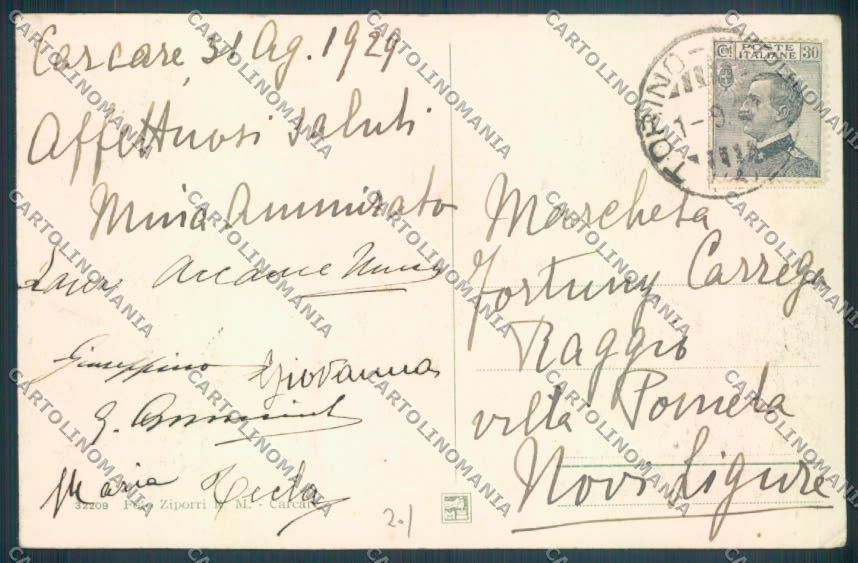 Carcare 31 Ag. 1929
Affettuosi saluti
Mina Ammirato
Giuseppino Giovanna
Maria Tecla
32209 Ziporri M. - Carcare
2.1
CENT POSTE ITALIANE 30
TORINO
1-9
Marchesa
Fortuny Carrega
Raggio
villa Pomela
Novi Ligure
CARTOLINOMANIA